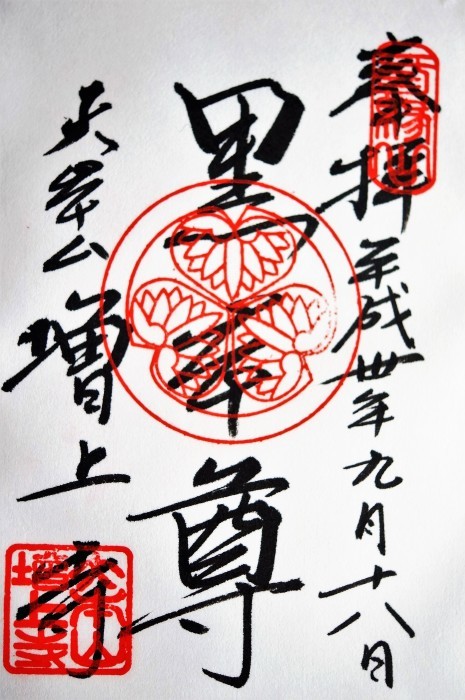 奉拝 平成卅年九月十八日
黒本尊
大本山 増上寺
大本山
増上寺